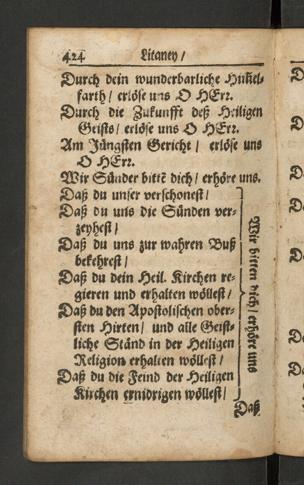 424 Litaney /
Durch dein wunderbarliche Him̃el-
farth / erlöse uns O HErr.
Durch die Zukunfft deß Heiligen
Geists / erlöse uns O HErr.
Am Jüngsten Gericht / erlöse uns
O HErr.
Wir Sünder bittẽ dich / erhöre uns.
Daß du unser verschonest /
Daß du uns die Sünden ver-
zeyhest /
Daß du uns zur wahren Buß
bekehrest /
Daß du dein Heil. Kirchen re-
gieren und erhalten wöllest /
Daß du den Apostolischen ober-
sten Hirten / und alle Geist-
liche Ständ in der Heiligen
Religion erhalten wöllest /
Daß du die Feind der Heiligen
Kirchen ernidrigen wöllest /
Wir bitten dich / erhöre uns
Daß